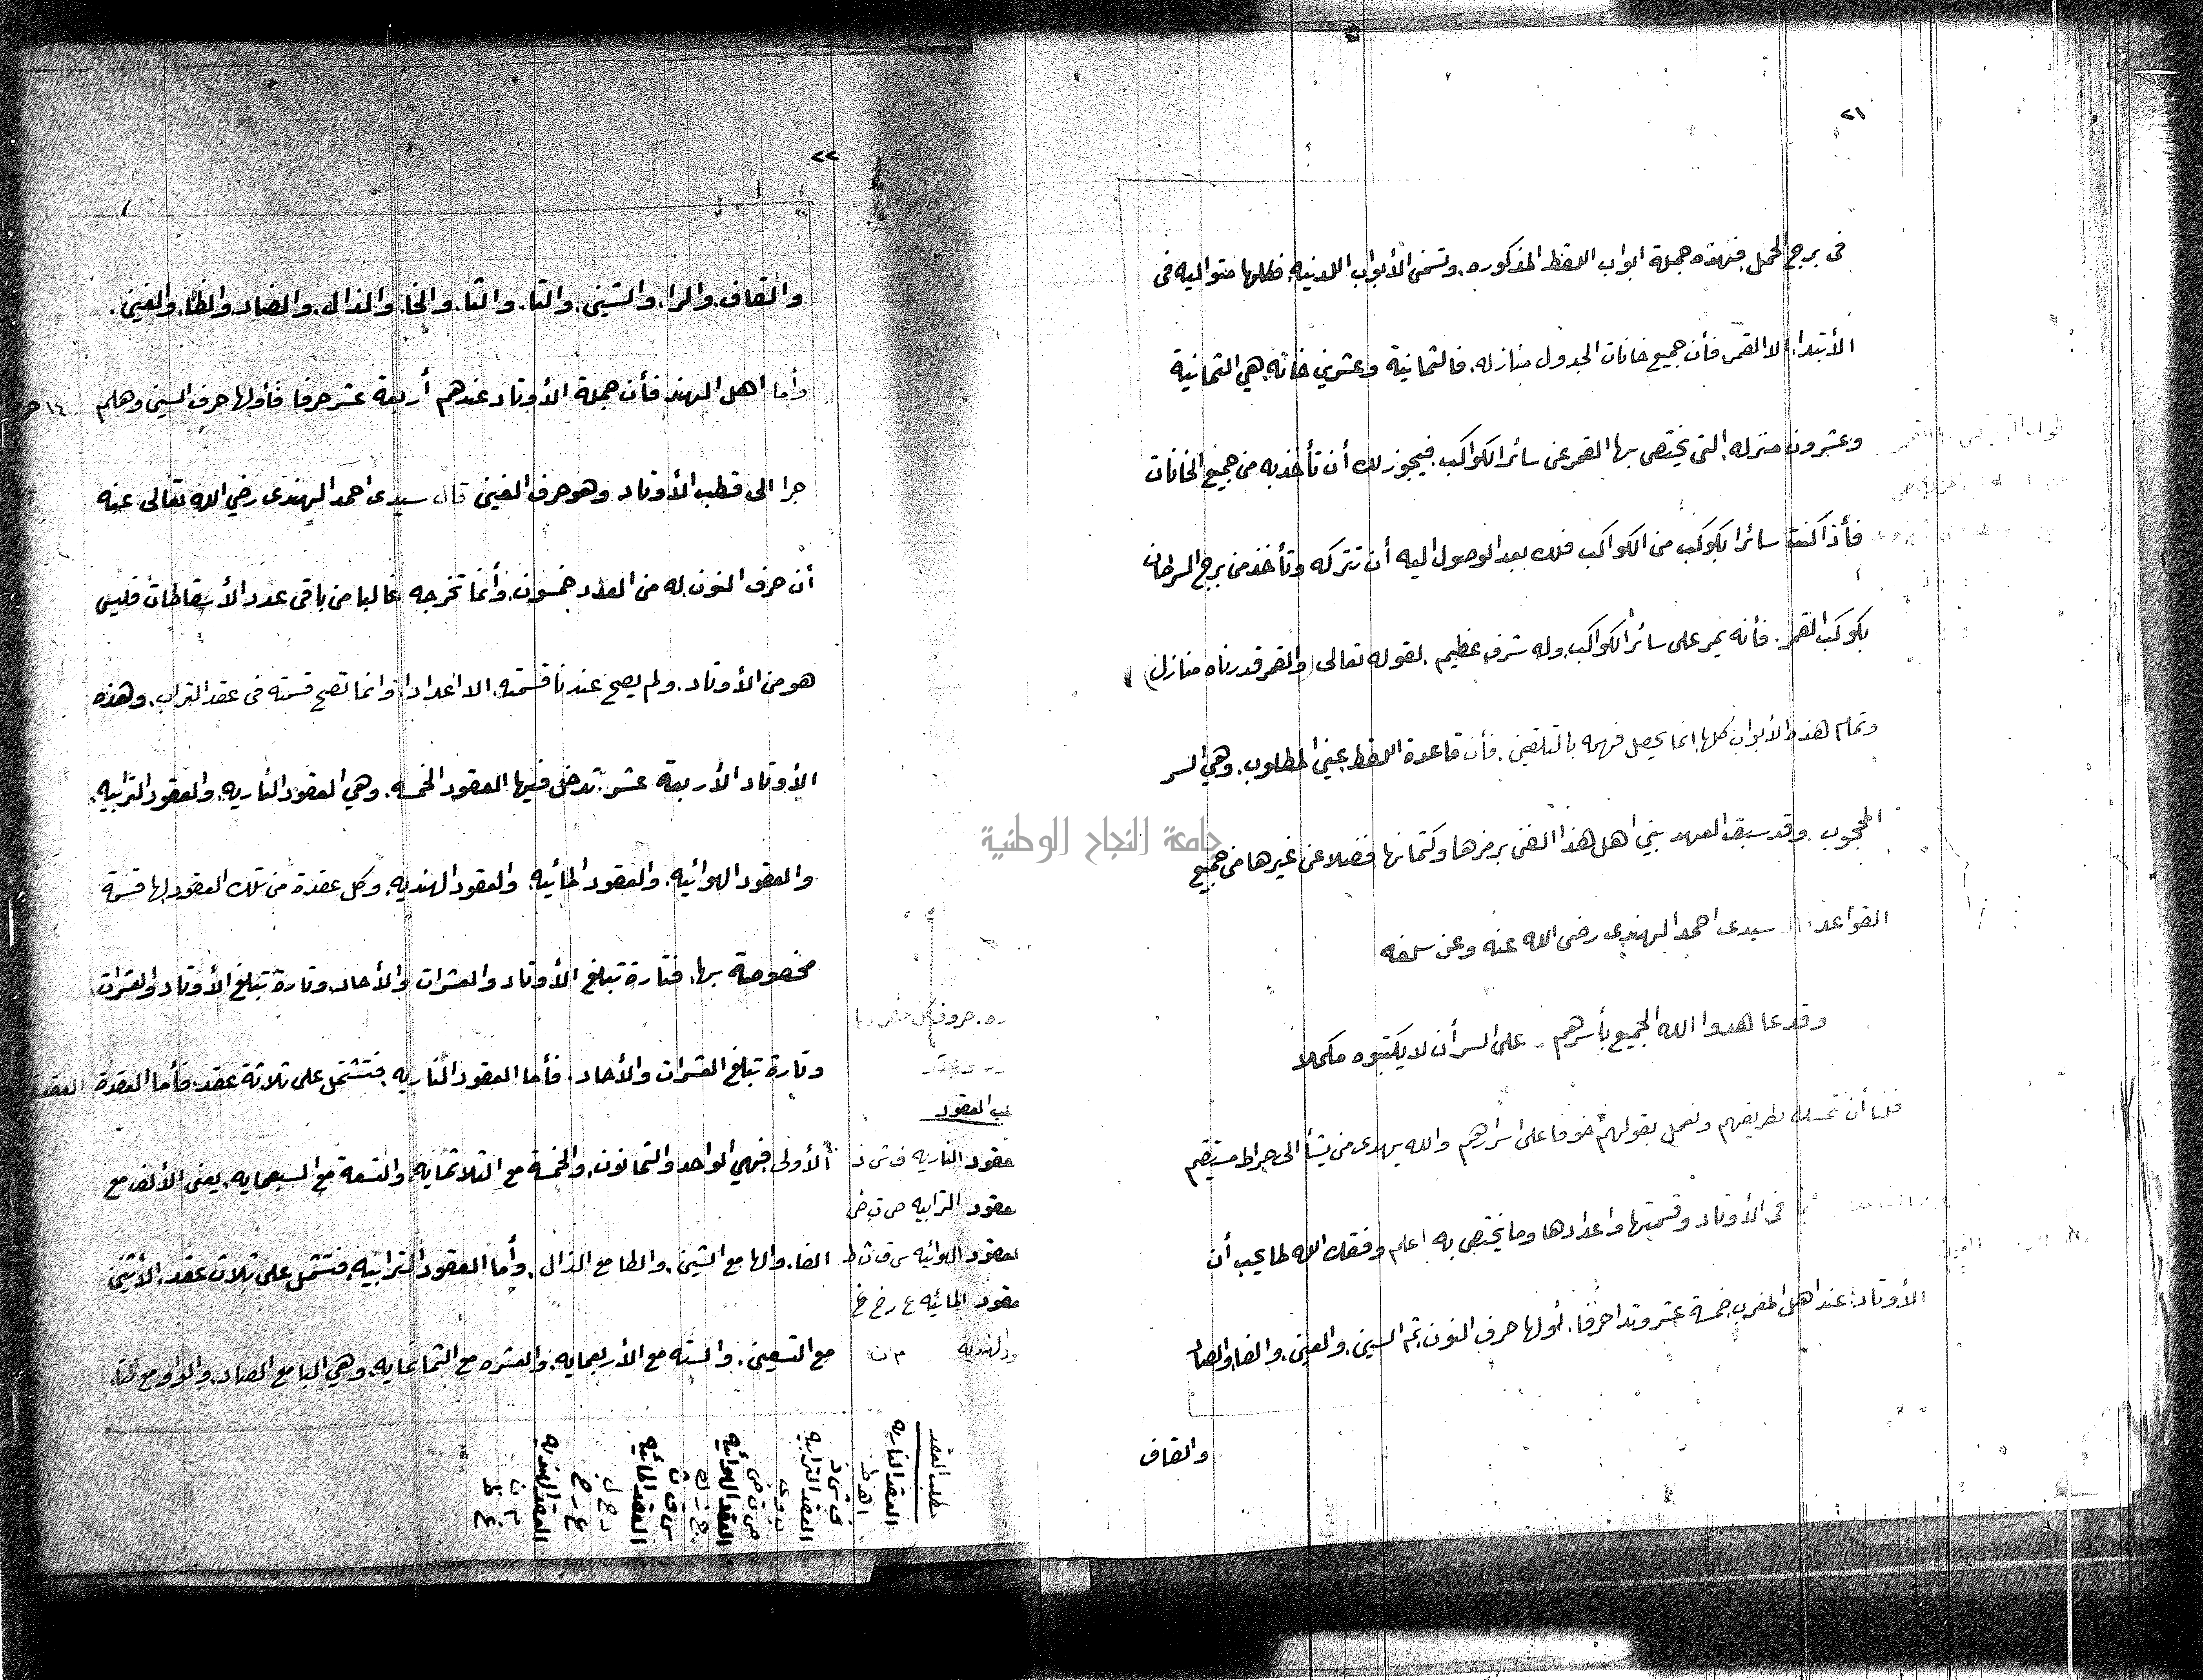 ٢١
فى برج الحمل فهذه جملة ابواب اللقط المذكوره، وتسمى الأبواب اللدنيه، فكلها متواليه فى
الأبتدا، الا القمر فأن جميع خانات الجدول منازله، فالثمانية وعشرين خانه هي الثمانية
وعشرون منزله التى يختص بها القمر عن سائر الكواكب، فيجوز لك أن تأخذ به من جميع الخانات
فأذا كنت سائرا بكوكب من الكواكب فلك بعد الوصول اليه أن تتركه وتأخذ من برج السرطان
بكوكب القمر. فأنه يمر على سائر الكواكب، وله شرف عظيم، لقوله تعالى (والقمر قدرناه منازل)
وتمام هذه الأبواب كلها انما يحصل فهمه بالتلقين. فأن قاعدة اللقط عين المطلوب. وهي السر
المحجوب. وقد سبق العهد بين اهل هذا الفن برمزها وكتمانها فضلا عن غيرها من جميع
القواعد سيدى احمد الهندى رضى الله عنه وعن سلفه
وقد عاهدوا الله الجميع بأسرهم .. على السر أن لا يكتبوه مكملا
فلنا أن نمسك طريقهم ونعمل بقولهم خوفا على اسرارهم والله يهدى من يشأ الى صراط مستقيم
فى الأوتاد وقسمتها واعدادها وما يختص به اعلم وفقك الله لما يحب أن
الأوتاد عند اهل المغرب خمسة عشر وتدا حرفا، أولها حرف النون، ثم السين، والعين، والفا، والصاد
والقاف
٢٢
والقاف، والرا، والشين، والتا، والثا، والخا، والذال، والضاد، والظا، والغين.
وأما اهل الهند فأن جملة الأوتاد عندهم أربعة عشر حرفا فأولها حرف السين وهلم
جرا الى قطب الأوتاد وهو حرف الغين قال سيدى احمد الهندى رضي الله تعالى عنه
أن حرف النون له من العدد خمسون، وأنما تخرجه غالبا من باقى عدد الأسقاطات فليس
هو من الأوتاد، ولم يصح عندنا قسمته، الا اعدادا، وانما تصح قسمته فى عقد التراب، وهذه
الأوتاد الأربعة عشر تدخل فيها العقود الخمسه، وهي العقود الناريه، والعقود الترابيه،
والعقود الهوائيه، والعقود المائيه، والعقود الهنديه، وكل عقدة من تلك العقود لها قسمة
مخصوصة بها، فتارة تبلغ الأوتاد والعشرات والأحاد، وتارة تبلغ الأوتاد والعشرات،
وتارة تبلغ العشرات والأحاد. فأما العقود الناريه، فتشتمل على ثلاثة عقد، فأما العقدة العقدة
الأولى فهي الواحد والثمانون، والخمسة مع الثلاثمايه، والتسعة مع السبعمايه، يعنى الألف مع
الفا، والها مع الشين، والطا مع الذال، وأما العقود الترابيه، فتشتمل على ثلاث عقد، الأثنين
مع التسعين، والسته مع الأربعمايه، والعشره مع الثمانمايه، وهي البا مع الصاد، والواو مع التا،
العقود
عقود الناريه ف ش ذ
عقود الترابيه ص ت ض
عقود الهوائيه س ق ث ظ
عقود المائيه ع ر خ غ
م ن
مطلب العقد
العقد الناريه
ا ه ط
ف ش ذ
العقد الترابيه
ب و ى
ص ت ض
العقد الهوائيه
ج ز ك
س ق ث
العقد المائيه
د ح ل
ع ر خ
العقد الهنديه
م ن
غ ظ
جامعة النجاح الوطنية